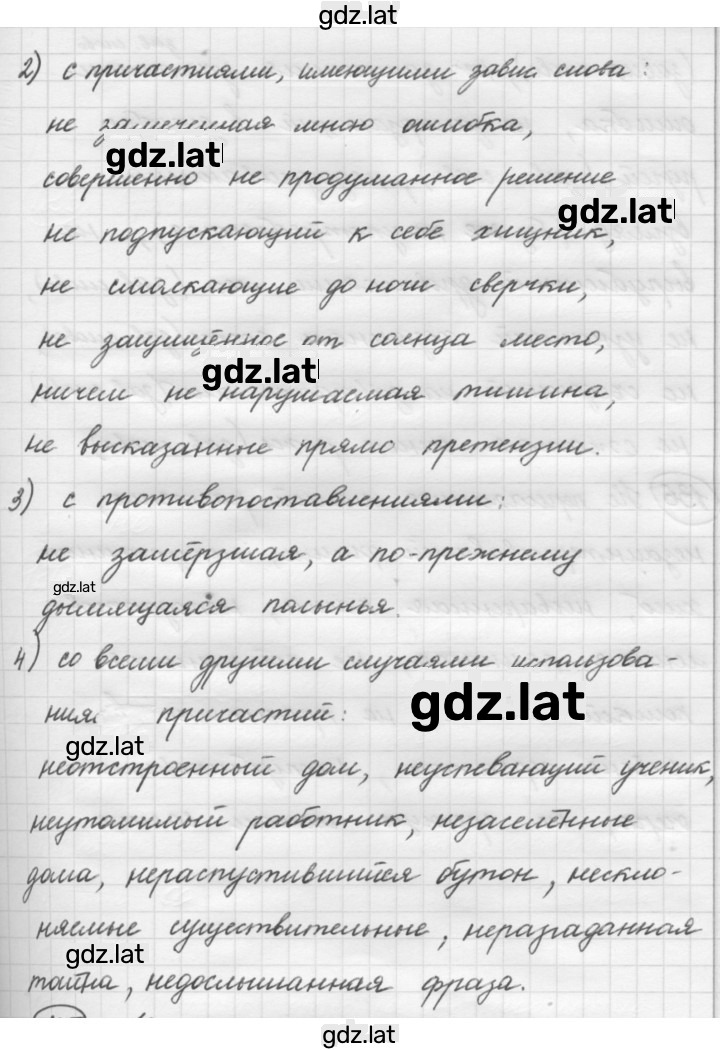 gdz.lat
2) с причастиями, имеющими завис. слова:
не замеченная мною ошибка,
gdz.lat
совершенно не продуманное решение
gdz.lat
не подпускающий к себе хищник,
не смолкающие до ночи сверчки,
не защищённое от солнца место,
gdz.lat
ничем не нарушаемая тишина,
не высказанные прямо претензии.
3) с противопоставлениями:
не замёрзшая, а по-прежнему
gdz.lat
дымящаяся полынья.
4) со всеми другими случаями использова-
gdz.lat
ния причастий:
gdz.lat
неотстроенный дом, неуспевающий ученик,
неутомимый работник, незаселённые
дома, нераспустившийся бутон, нескло-
няемые существительные, неразгаданная
gdz.lat
тайна, недослышанная фраза.
gdz.lat